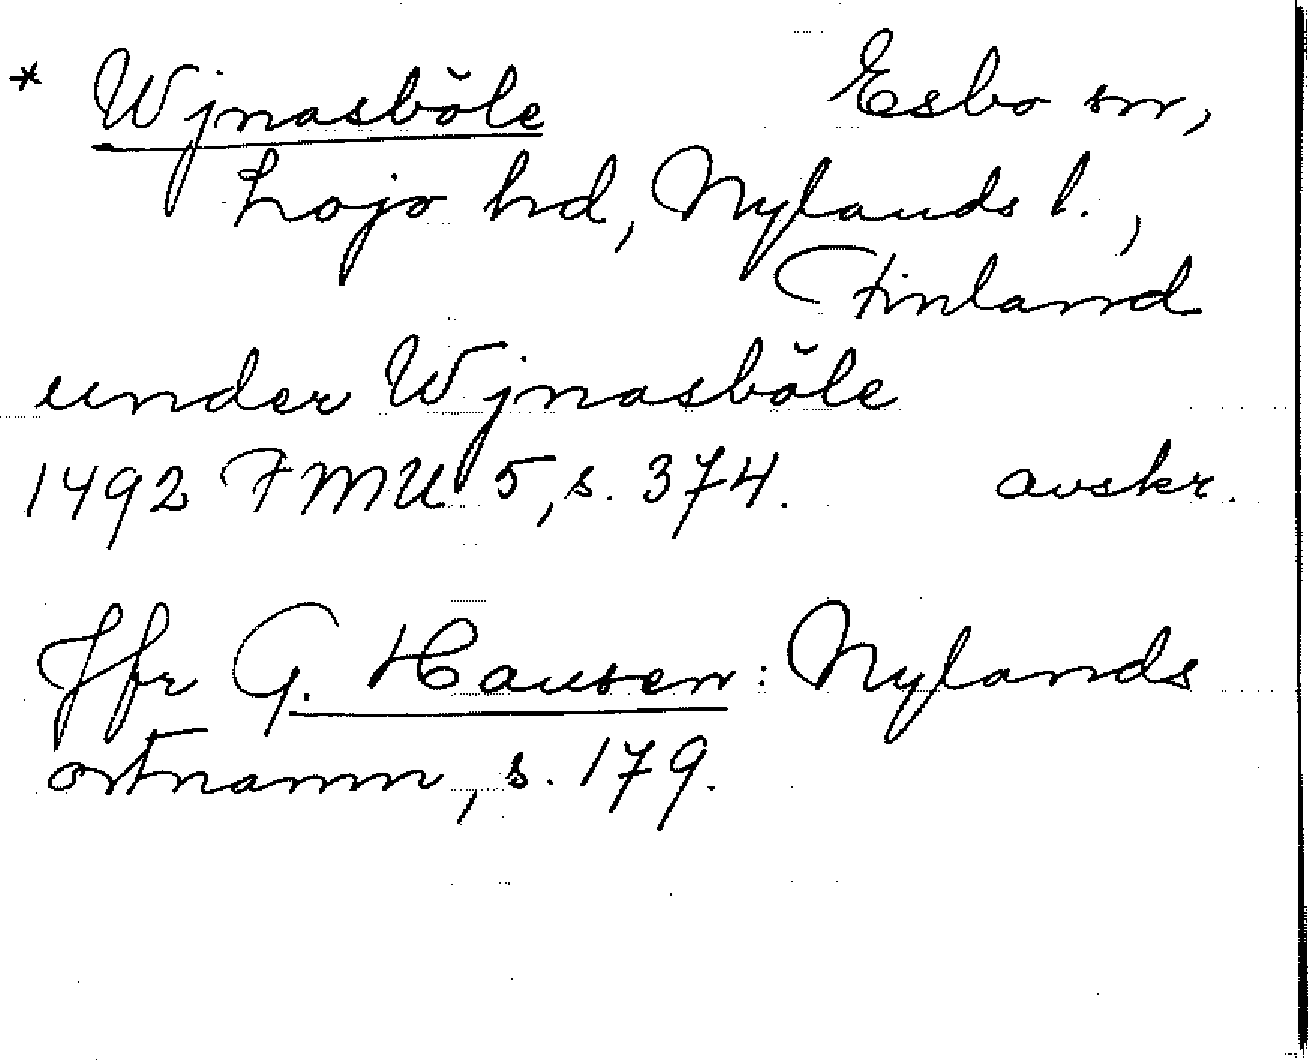 * Wjnasböle Esbo sn,
Lojo hd, Nylands l.,
Finland
under Wjnasböle
1492 FMU 5, s. 374. avskr.
Jfr G. Hausen: Nylands
ortnamn, s. 179.